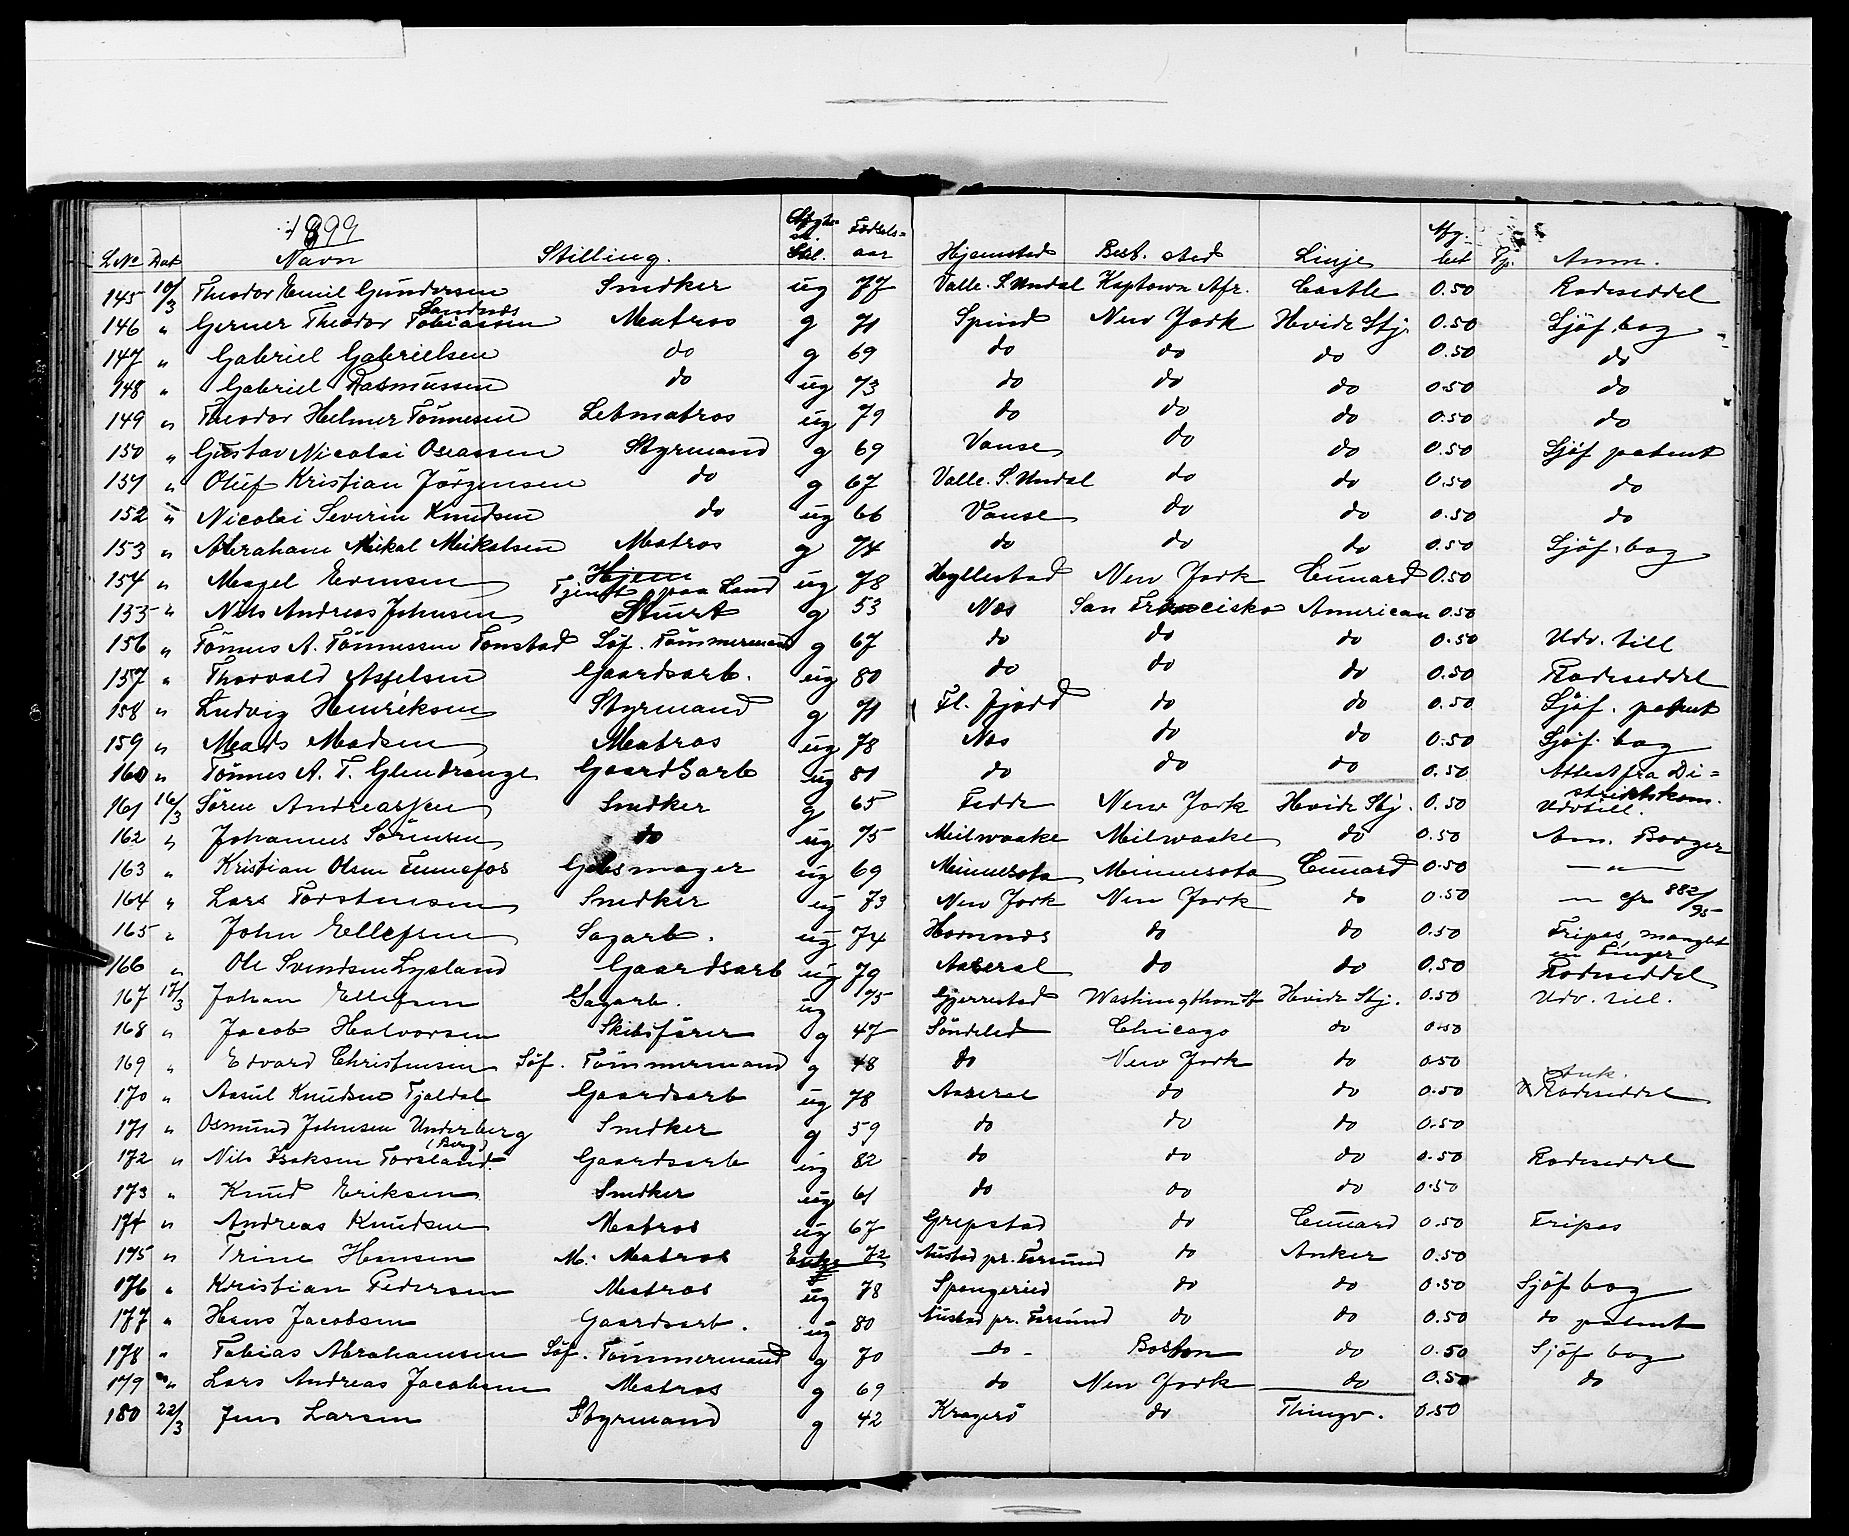 1899
L No Dat Navn Stilling. Ægte- sk. Stil. Fødsels= aar Hjemsted Best. sted Linje Afg. bet Tp. Anm.
145 10/3 Theodor Emil Gundersen Snedker ug 77 Valle. S. Undal Kaptown Afr. Castle 0.50 Rodeseddel
Sandnes
146 " Gerner Theodor Tobiassen Matros g 71 Spind New York Hvide Stj. 0.50 Sjöf. bog
147 " Gabriel Gabrielsen do g 69 do do do 0.50 do
148 " Gabriel Rasmussen do ug 73 do do do 0.50 do
149 " Theodor Helmer Tönnesen Letmatros ug 79 do do do 0.50 do
150 " Gustav Nicolai Oseassen Styrmand g 69 Vanse do do 0.50 Sjöf patent
151 " Oluf Kristian Jörgensen do g 67 Valle. S. Undal do do 0.50 do
152 " Nicolai Severin Knudsen do ug 66 Vanse do do 0.50 do
153 " Abraham Mikal Mikalsen Matros g 74 do do do 0.50 Sjöf. bog
154 " Evensen Hjem Tjenst paa Land ug 78 Hyllestad New York Cunard 0.50
155 " Nils Andreas Johnsen Stuert g 53 Nes San Francisko American 0.50
156 " Tönnes A. Tönnessen Tonstad Söf. Tömmermand g 67 do do do 0.50 Udv. till
157 " Thorvald Axelsen Gaardsarb. ug 80 do do do 0.50 Rodeseddel
158 " Ludvig Henriksen Styrmand g 71 Fl. Fjord do do 0.50 Sjöf. patent
159 " Mads Madsen Matros ug 78 Nes do do 0.50 Sjöf. bog
160 " Tönnes A. T. Glendrange Gaardsarb ug 81 do do do 0.50 Attest fra Di=
striktskom.
161 16/3 Sören Andreassen Snedker g 65 Fedde New York Hvide Stj. 0.50 Udvtill.
162 " Johannes Sörensen do ug 75 Milwaake Milwaake do 0.50 Am. Borger
163 " Kristian Olsen Tunnefos Gibsmager ug 69 Minnesota Minnesota Cunard 0.50 — " —
164 " Lars Torstensen Snedker ug 73 New York New York do 0.50 — " cfr 882/95
165 " John Ellefsen Sagarb. ug 74 Hornnes do do 0.50 Fripas, mangler
en Finger
166 " Ole Svendsen Lysland Gaardsarb ug 79 Aaseral do do 0.50 Rodeseddel
167 17/3 Johan Ellefsen Sagarb. ug 75 Gjerrestad Washingthon St Hvide Stj. 0.50 Udv. till.
168 " Jacob Halvorsen Skibsförer g 47 Söndeled Chicago do 0.50
169 " Edvard Christensen Söf. Tömmermand g 48 do New York do 0.50
Ank.
170 " Aasul Knudsen Fjeldal Gaardsarb ug 78 Aaseral do do 0.50 X Rodeseddel
171 " Osmund Johnsen Underberg Snedker g 59 do do do 0.50
(Berg)
172 " Nils Isaksen Torsland Gaardsarb ug 82 do do do 0.50 Rodeseddel
173 " Knud Eriksen Snedker ug 61 do do do 0.50
174 " Andreas Knudsen Matros ug 67 Grepstad do Cunard 0.50 Fripas
175 " Trine Hansen M: Matros Enke 72 Austad pr. Farsund do Anker 0.50
176 " Kristian Pedersen Matros ug 78 Spangeried do do 0.50 Sjöf bog
177 " Hans Jacobsen Gaardsarb. ug 80 Austad pr. Farsund do do 0.50 do patent
178 " Tobias Abrahamsen Söf. Tömmermand g 70 — do — Boston do 0.50 Sjöf bog
179 " Lars Andreas Jacobsen Matros g 69 do New York do 0.50 do
180 22/3 Jens Larsen Styrmand g 42 Kragerö do Thingv. 0.50